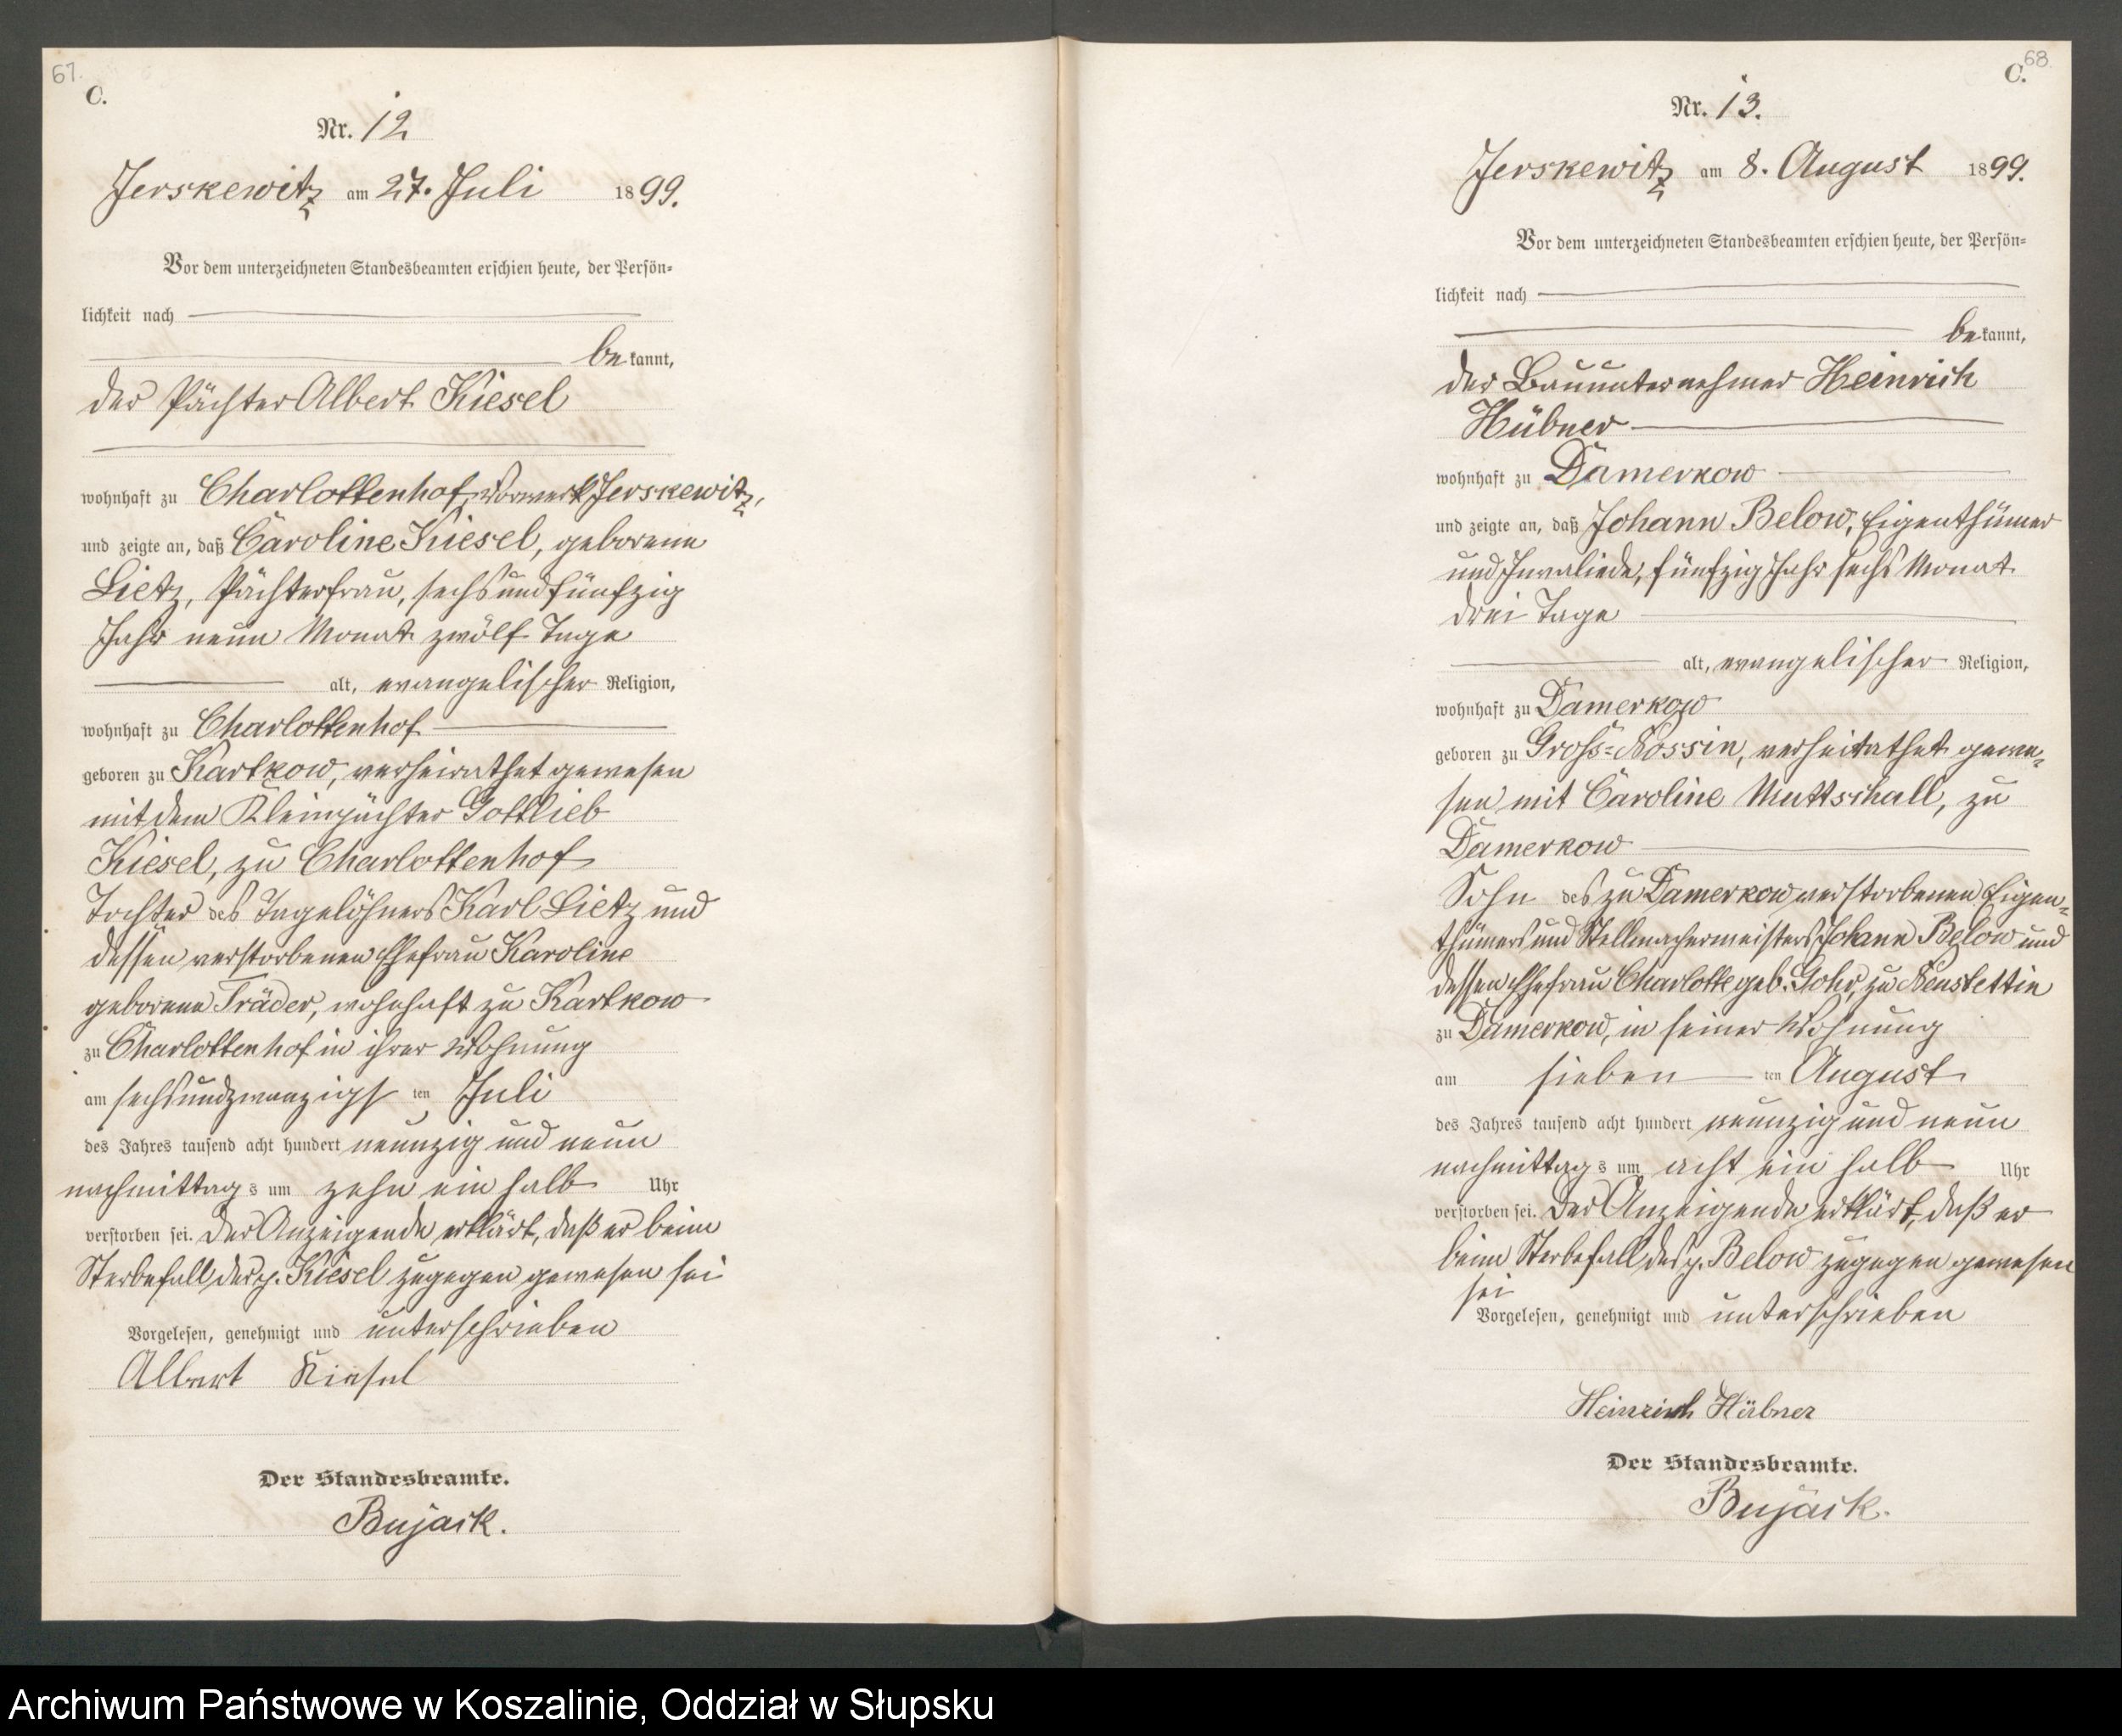 67.
C.
Nr. 12
Jerskewitz am 27. Juli 1899.
Vor dem unterzeichneten Standesbeamten erschien heute, der Persön-
lichkeit nach
bekannt,
der Pächter Albert Kiesel
wohnhaft zu Charlottenhof, Vorwerk Jerskewitz,
und zeigte an, daß Caroline Kiesel, geborene
Lietz, Pächterfrau, sechsundfünfzig
Jahr neun Monat zwölf Tage
alt, evangelischer Religion,
wohnhaft zu Charlottenhof
geboren zu Kartkow, verheirathet gewesen
mit dem Kleinpächter Gottlieb
Kiesel, zu Charlottenhof
Tochter des Tagelöhners Karl Lietz und
dessen verstorbenen Ehefrau Karoline
geborene Träder, wohnhaft zu Kartkow
zu Charlottenhof in ihrer Wohnung
am sechsundzwanzigsten Juli
des Jahres tausend acht hundert neunzig und neun
nachmittags um zehn ein halb Uhr
verstorben sei. Der Anzeigende erklärt, daß er beim
Sterbefall der p. Kiesel zugegen gewesen sei
Vorgelesen, genehmigt und unterschrieben
Albert Kiesel
Der Standesbeamte.
Bujack.
68
C.
Nr. 13.
Jerskewitz am 8. August 1899.
Vor dem unterzeichneten Standesbeamten erschien heute, der Persön-
lichkeit nach
bekannt,
der Bauunternehmer Heinrich
Hübner
wohnhaft zu Damerkow
und zeigte an, daß Johann Below, Eigenthümer
und Invaliede, fünfzig Jahr sechs Monat
drei Tage
alt, evangelischer Religion,
wohnhaft zu Damerkow
geboren zu Groß-Nossin, verheirathet gewe-
sen mit Caroline Muttschall, zu
Damerkow
Sohn des zu Damerkow verstorbenen Eigen-
thümers und Stellmachermeisters Johann Below und
dessen Ehefrau Charlotte geb. Gohr, zu Neustettin
zu Damerkow, in seiner Wohnung
am siebenten August
des Jahres tausend acht hundert neunzig und neun
nachmittags um acht ein halb Uhr
verstorben sei. Der Anzeigende erklärt, daß er
beim Sterbefall des p. Below zugegen gewesen
sei
Vorgelesen, genehmigt und unterschrieben
Heinrich Hübner
Der Standesbeamte.
Bujack.
Archiwum Państwowe w Koszalinie, Oddział w Słupsku